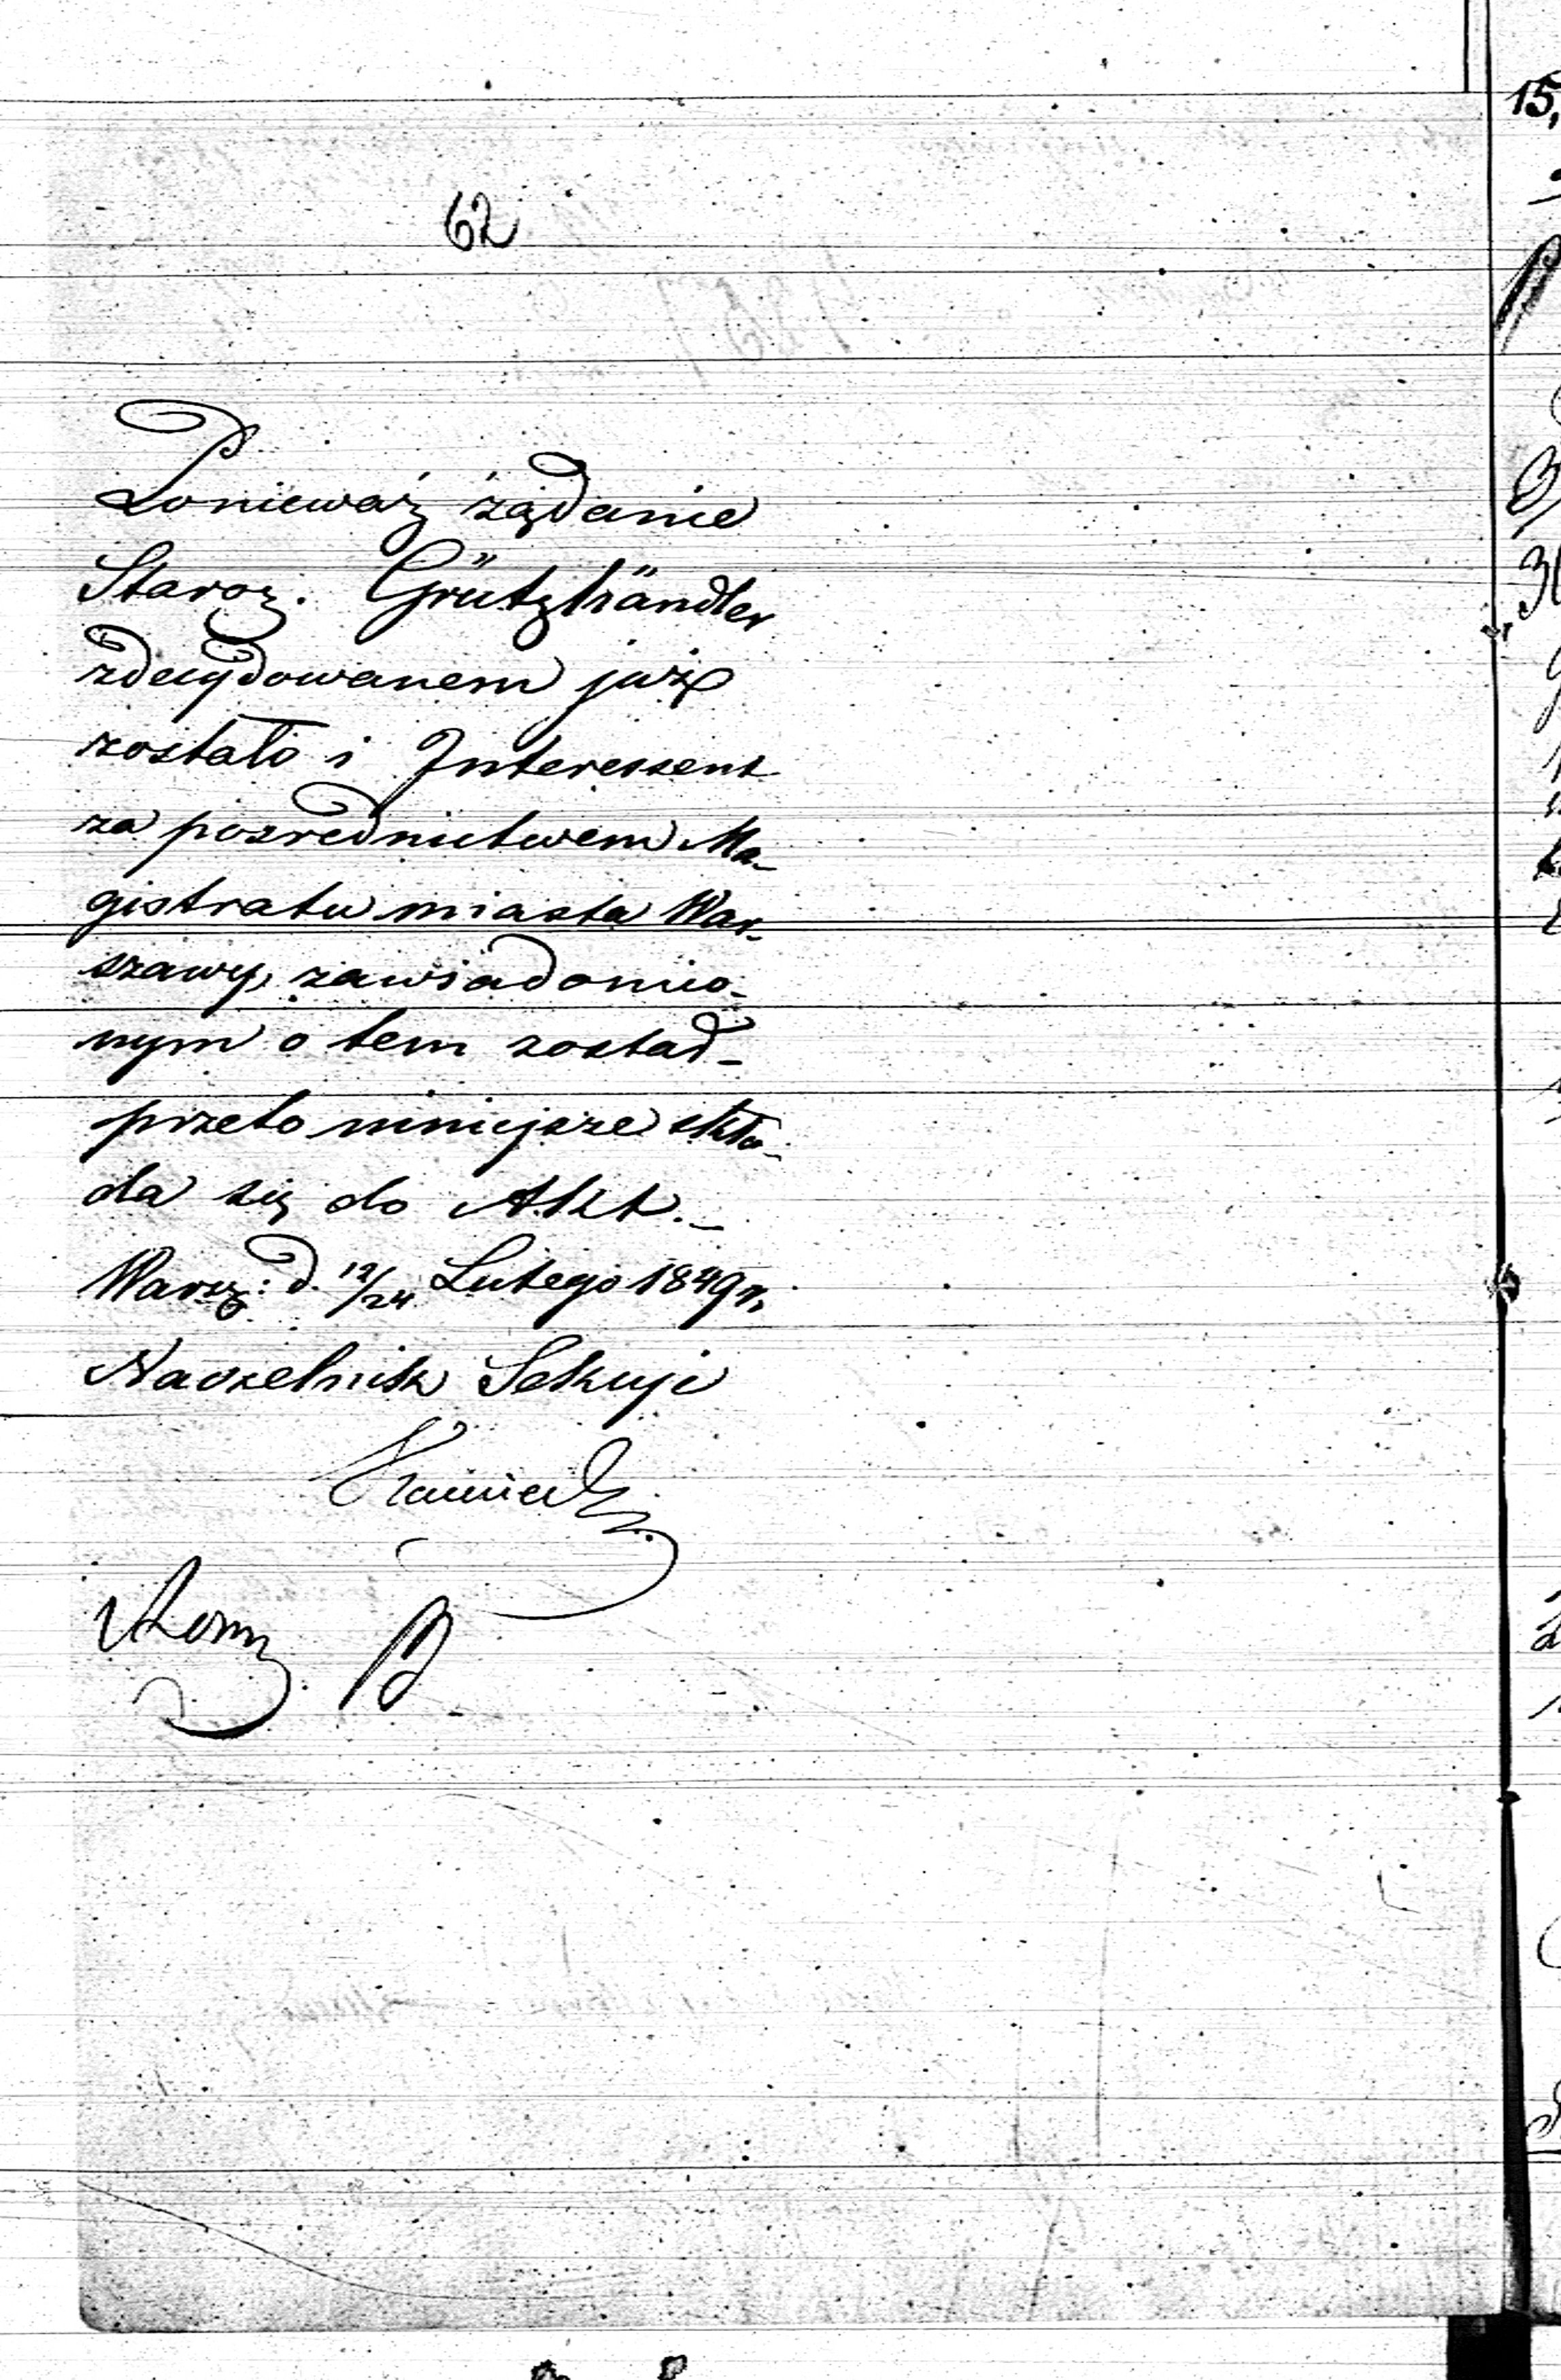 62
Ponieważ żądanie
Staroz. Grützhändler
zdecydowanem już
zostało i Interessent
za pośrednictwem Ma-
gistratu miasta War-
szawy, zawiadomio-
nym o tem został -
przeto niniejsze skła-
da się do Akt. -
Warsz: d. 12/24 Lutego 1849 r.
Naczelnik Sekcyi
15,